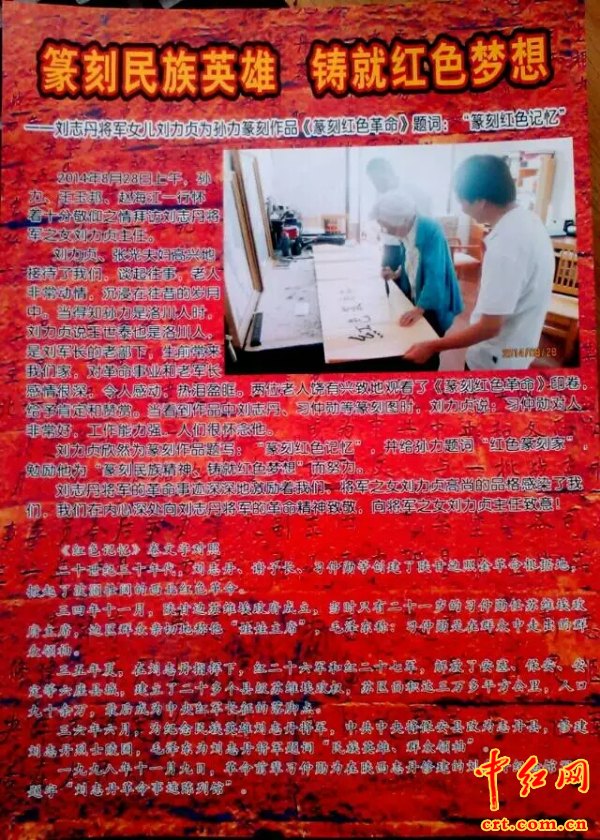 篆刻民族英雄 铸就红色梦想
——刘志丹将军女儿刘力贞为孙力篆刻作品《篆刻红色革命》题词：“篆刻红色记忆”
2014年8月28日上午，孙
力、王玉邦、赵海江一行怀
着十分敬仰之情拜访刘志丹将
军之女刘力贞主任。
刘力贞、张光夫妇高兴地
接待了我们，谈起往事，老人
非常动情，沉浸在往昔的岁月
中。当得知孙力是洛川人时，
刘力贞说王世泰也是洛川人，
是刘军长的老部下，生前常来
我们家，对革命事业和老军长
感情很深，令人感动，热泪盈眶。两位老人饶有兴致地观看了《篆刻红色革命》印卷，
给予肯定和赞赏。当看到作品中刘志丹、习仲勋等篆刻图时，刘力贞说：习仲勋对人
非常好，工作能力强，人们很怀念他。
刘力贞欣然为篆刻作品题写：“篆刻红色记忆”，并给孙力题词“红色篆刻家”，
勉励他为“篆刻民族精神、铸就红色梦想”而努力。
刘志丹将军的革命事迹深深地激励着我们，将军之女刘力贞高尚的品格感染了我
们，我们在内心深处向刘志丹将军的革命精神致敬，向将军之女刘力贞主任致意！
2014/08/28
《红色记忆》卷文字对照
二十世纪三十年代，刘志丹、谢子长、习仲勋等创建了陕甘边照金革命根据地，
掀起了波澜壮阔的西北红色革命。
三四年十一月，陕甘边苏维埃政府成立，当时只有二十一岁的习仲勋任苏维埃政
府主席，边区群众亲切地称他“娃娃主席”，毛泽东称：习仲勋是在群众中走出的群
众领袖。
三五年夏，在刘志丹指挥下，红二十六军和红二十七军，解放了安塞、保安、安
定等六座县城，建立了二十多个县级苏维埃政权，苏区面积达三万多平方公里，人口
九十余万，最后成为中央红军长征的落脚点。
三六年六月，为纪念民族英雄刘志丹将军，中共中央将保安县改为志丹县，修建
刘志丹烈士陵园，毛泽东为刘志丹将军题词“民族英雄、群众领袖”。
一九九八年十一月九日，革命前辈习仲勋为在陕西志丹修建的刘
题字“刘志丹革命事迹陈列馆”。
中红网
crt.com.cn